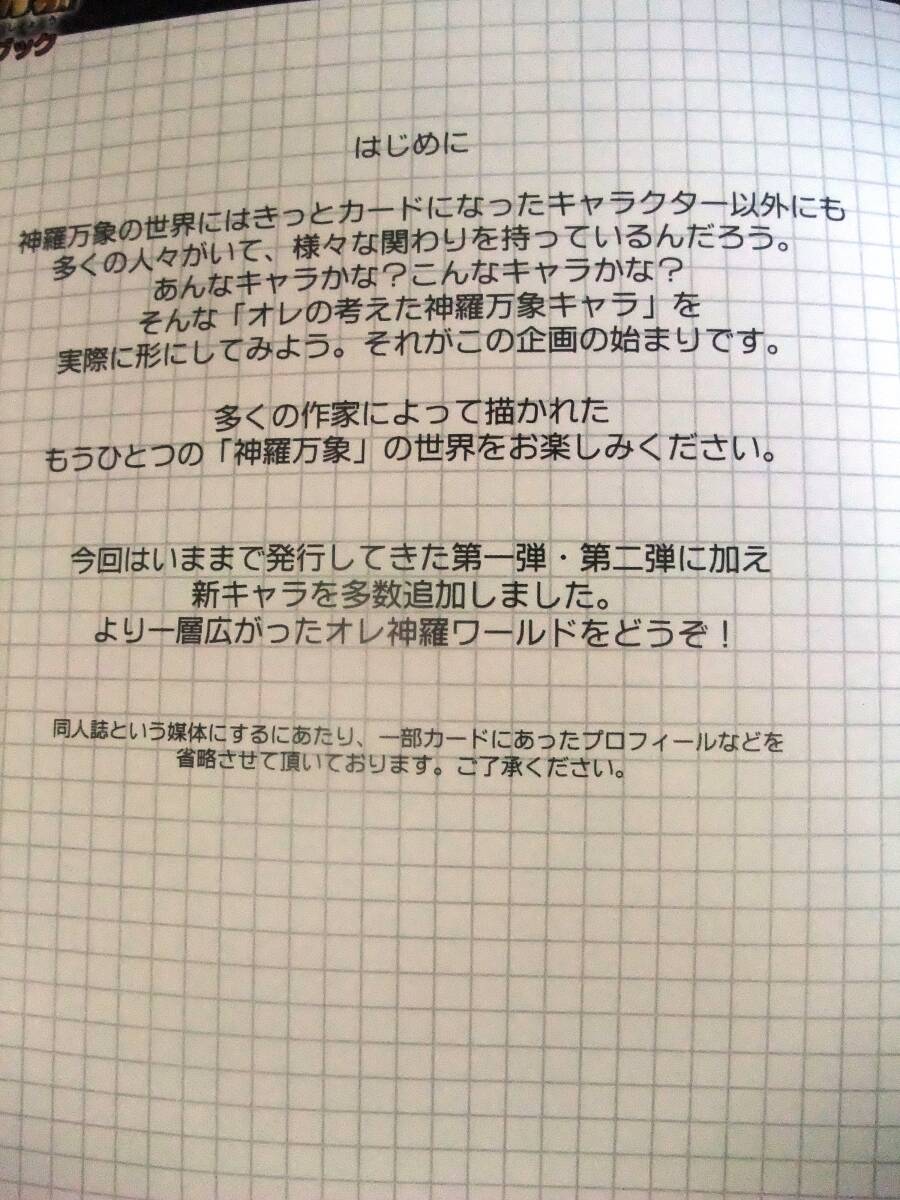 ブック
はじめに
神羅万象の世界にはきっとカードになったキャラクター以外にも
多くの人々がいて、様々な関わりを持っているんだろう。
あんなキャラかな？こんなキャラかな？
そんな「オレの考えた神羅万象キャラ」を
実際に形にしてみよう。それがこの企画の始まりです。
多くの作家によって描かれた
もうひとつの「神羅万象」の世界をお楽しみください。
今回はいままで発行してきた第一弾・第二弾に加え
新キャラを多数追加しました。
より一層広がったオレ神羅ワールドをどうぞ！
同人誌という媒体にするにあたり、一部カードにあったプロフィールなどを
省略させて頂いております。ご了承ください。